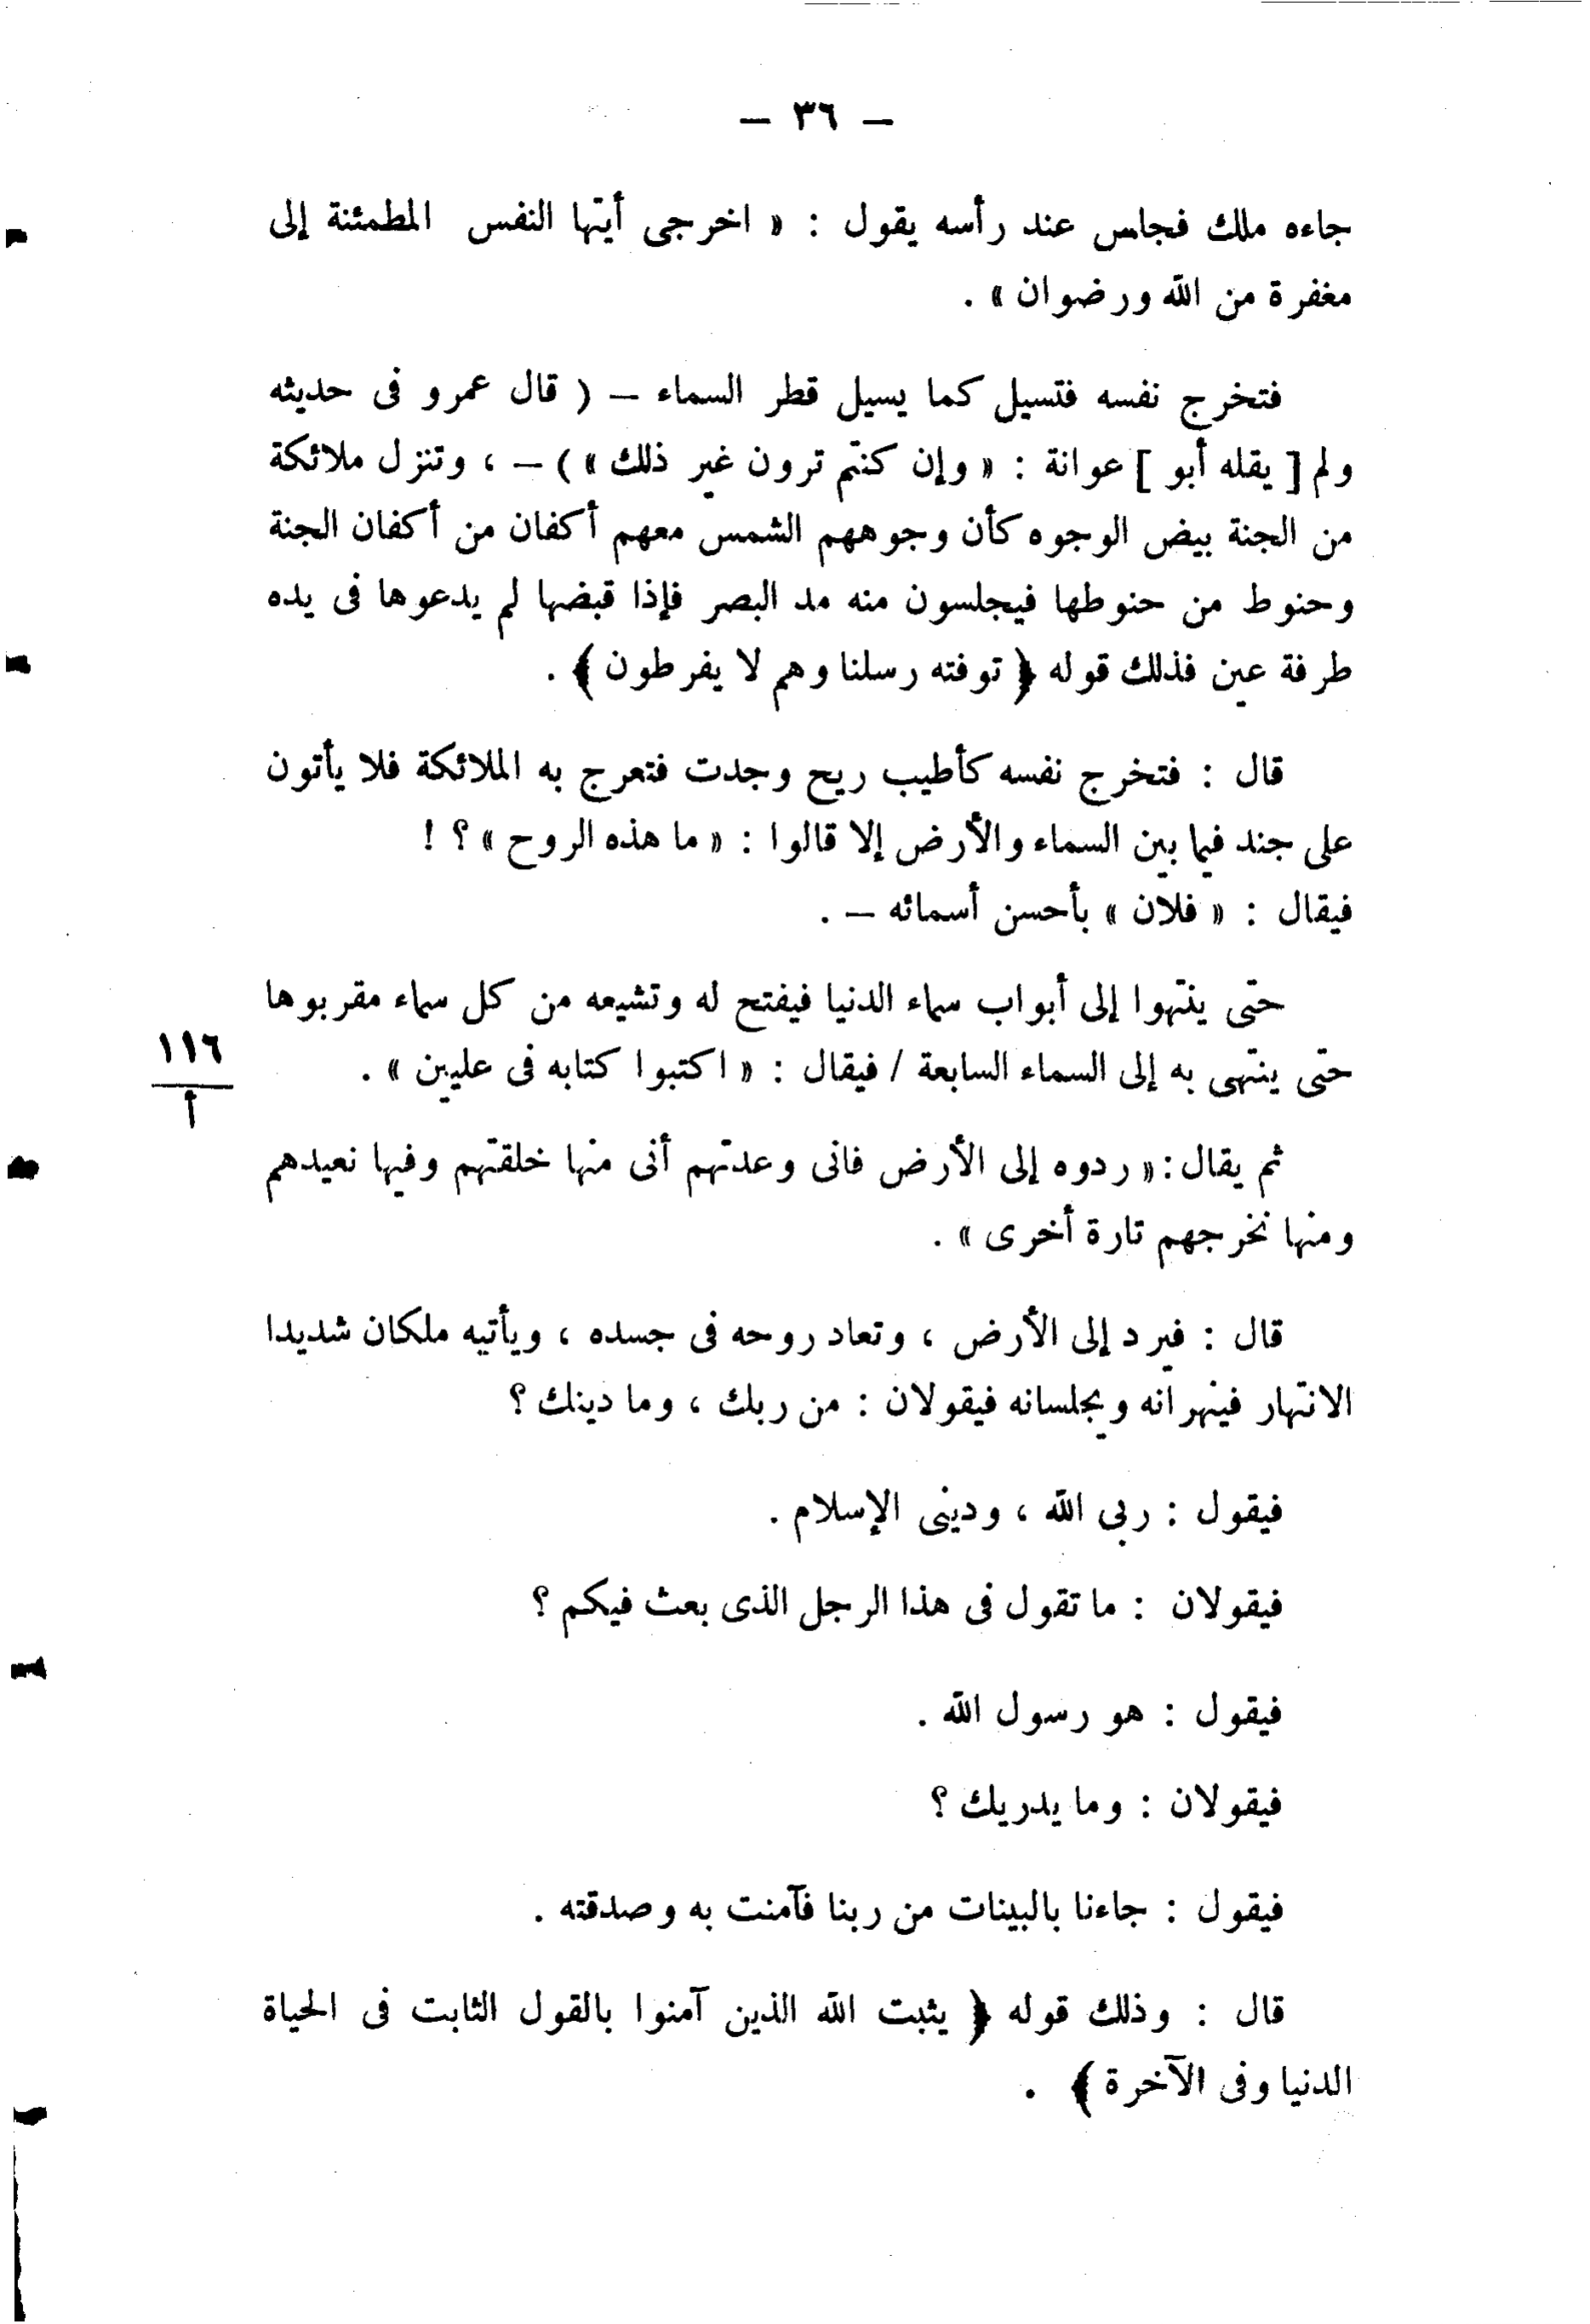 — ٣٦ —
جاءه ملك فجلس عند رأسه يقول : « اخرجى أيتها النفس المطمئنة إلى
مغفرة من الله ورضوان » .
فتخرج نفسه فتسيل كما يسيل قطر السماء — ( قال عمرو فى حديثه
ولم [ يقله أبو ] عوانة : « وإن كنتم ترون غير ذلك » ) — ، وتنزل ملائكة
من الجنة بيض الوجوه كأن وجوههم الشمس معهم أكفان من أكفان الجنة
وحنوط من حنوطها فيجلسون منه مد البصر فإذا قبضها لم يدعوها فى يده
طرفة عين فذلك قوله ﴿ توفته رسلنا وهم لا يفرطون ﴾ .
قال : فتخرج نفسه كأطيب ريح وجدت فتعرج به الملائكة فلا يأتون
على جند فيما بين السماء والأرض إلا قالوا : « ما هذه الروح » ؟ !
فيقال : « فلان » بأحسن أسمائه — .
حتى ينتهوا إلى أبواب سماء الدنيا فيفتح له وتشيعه من كل سماء مقربوها
حتى ينتهى به إلى السماء السابعة / فيقال : « اكتبوا كتابه فى عليين » .
١١٦
أ
ثم يقال : « ردوه إلى الأرض فانى وعدتهم أنى منها خلقتهم وفيها نعيدهم
ومنها نخرجهم تارة أخرى » .
قال : فيرد إلى الأرض ، وتعاد روحه فى جسده ، ويأتيه ملكان شديدا
الانتهار فينهرانه ويجلسانه فيقولان : من ربك ، وما دينك ؟
فيقول : ربى الله ، ودينى الإسلام .
فيقولان : ما تقول فى هذا الرجل الذى بعث فيكم ؟
فيقول : هو رسول الله .
فيقولان : وما يدريك ؟
فيقول : جاءنا بالبينات من ربنا فآمنت به وصدقته .
قال : وذلك قوله ﴿ يثبت الله الذين آمنوا بالقول الثابت فى الحياة
الدنيا وفى الآخرة ﴾ .